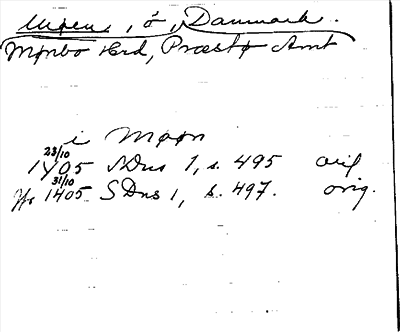 Møen, ö, Danmark.
Mønbo Hrd, Præstø Amt
i Møøn
23/10
1405 SDns 1, s. 495 orig
31/10
1405 SDns 1, s. 497. orig.